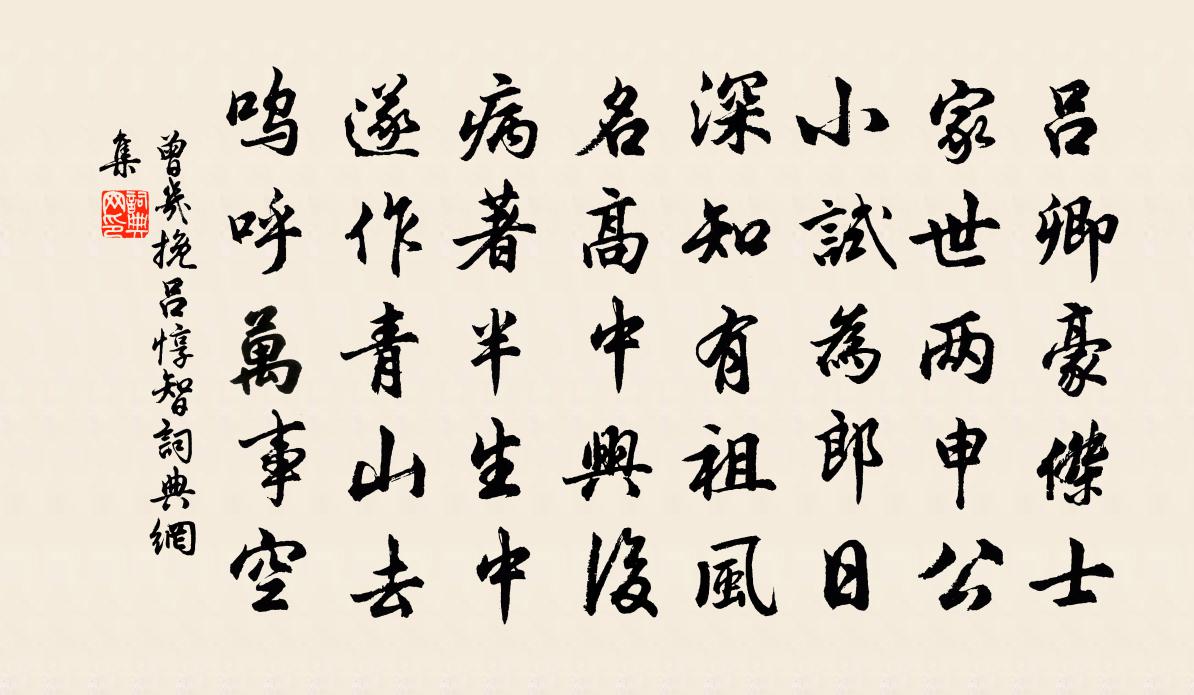 呂卿豪傑士
家世两申公
小試為郎日
深知有祖風
名高中興後
病著半生中
遂作青山去
嗚呼萬事空
曾幾挽呂惇智詞典網
集
詞典
网印